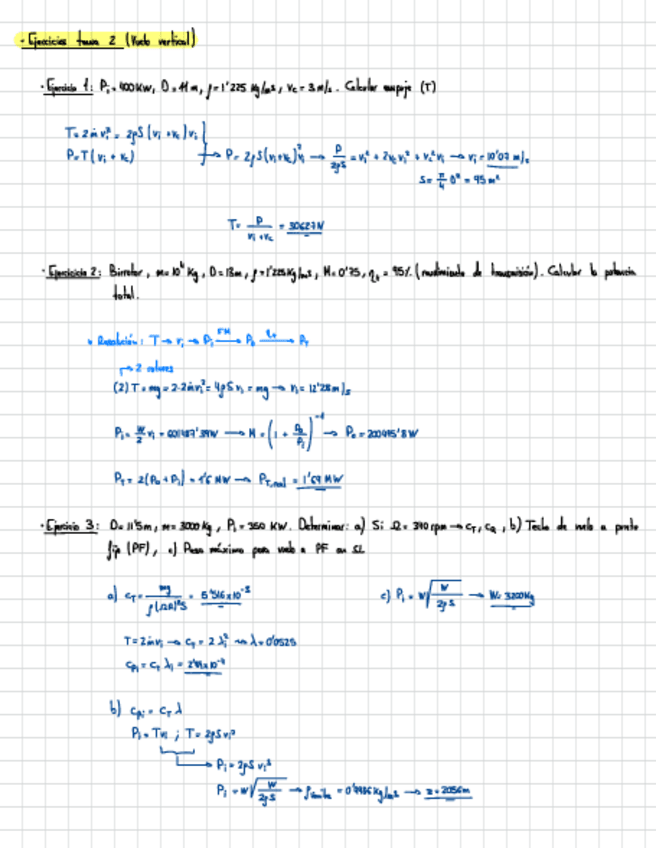 · Ejercicios tema 2 (Vuelo vertical)
· Ejercicio 1: Pi = 400 KW, D = 11 m, ρ = 1'225 Kg/m3, Vc = 3 m/s. Calcular empuje (T)
T = 2ṁvi = 2ρS(vi + vc)vi
P = T(vi + vc) → P = 2ρS(vi+vc)²vi → P/2ρS = vi³ + 2vc vi² + vc²vi → vi = 10'07 m/s
S = π/4 D² = 95 m²
T = P/(vi + vc) = 30627 N
· Ejercicio 2: Birrotor, m = 10⁴ Kg, D = 18m, ρ = 1'225Kg/m3, M = 0'75, = 95% (rendimiento de transmisión). Calcular la potencia
total.
• Resolución: T → vi → Pi → P0 → PT
→ 2 rotores
(2) T = mg = 2·2ṁvi = 4ρSvi² = mg → vi = 12'28 m/s
Pi = W/2 vi = W → M = (1 + P0/Pi)⁻¹ → P0 = W
PT = 2(P0 + Pi) = 1'6 MW → PT,real = 1'69 MW
· Ejercicio 3: D = 11'5m, m = 3000 Kg, Pi = 350 KW. Determinar: a) Si Ω = rpm → cT, cQ, b) Techo de vuelo a punto
fijo (PF), c) Peso máximo para vuelo a PF en SL
a) cT = mg/ρ(ΩR)²S = 5'516x10⁻³
c) Pi = W√(W/2ρS) → W = 3200Kg
T = 2ṁvi → cT = 2λi² → λ = 0'0525
cPi = cT λi =
b) cPi = cT λ
Pi = Tvi ; T = 2ρSvi²
→ Pi = 2ρSvi³
Pi = W√(W/2ρS) → ρ = Kg/m3 → z = 2056m